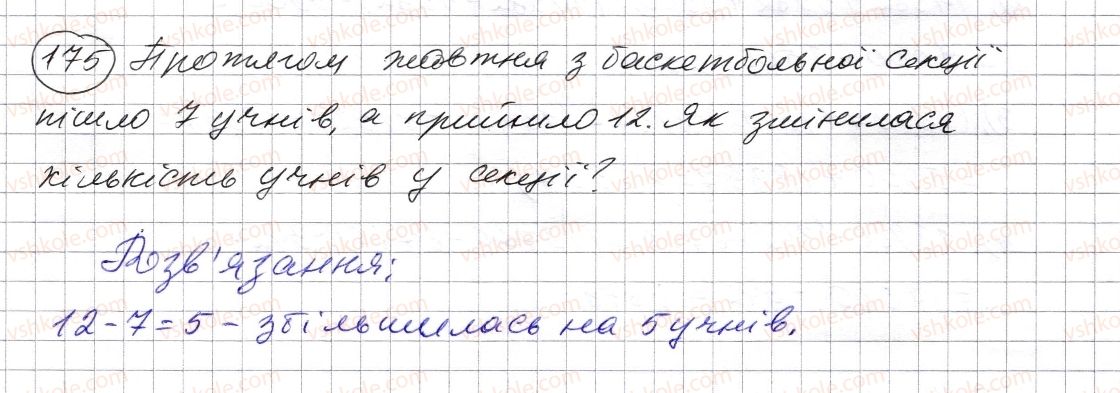 175 Протягом жовтня з баскетбольної секції
пішло 7 учнів, а прийшло 12. Як змінилася
кількість учнів у секції?
Розв'язання:
12-7=5 - збільшилась на 5 учнів.